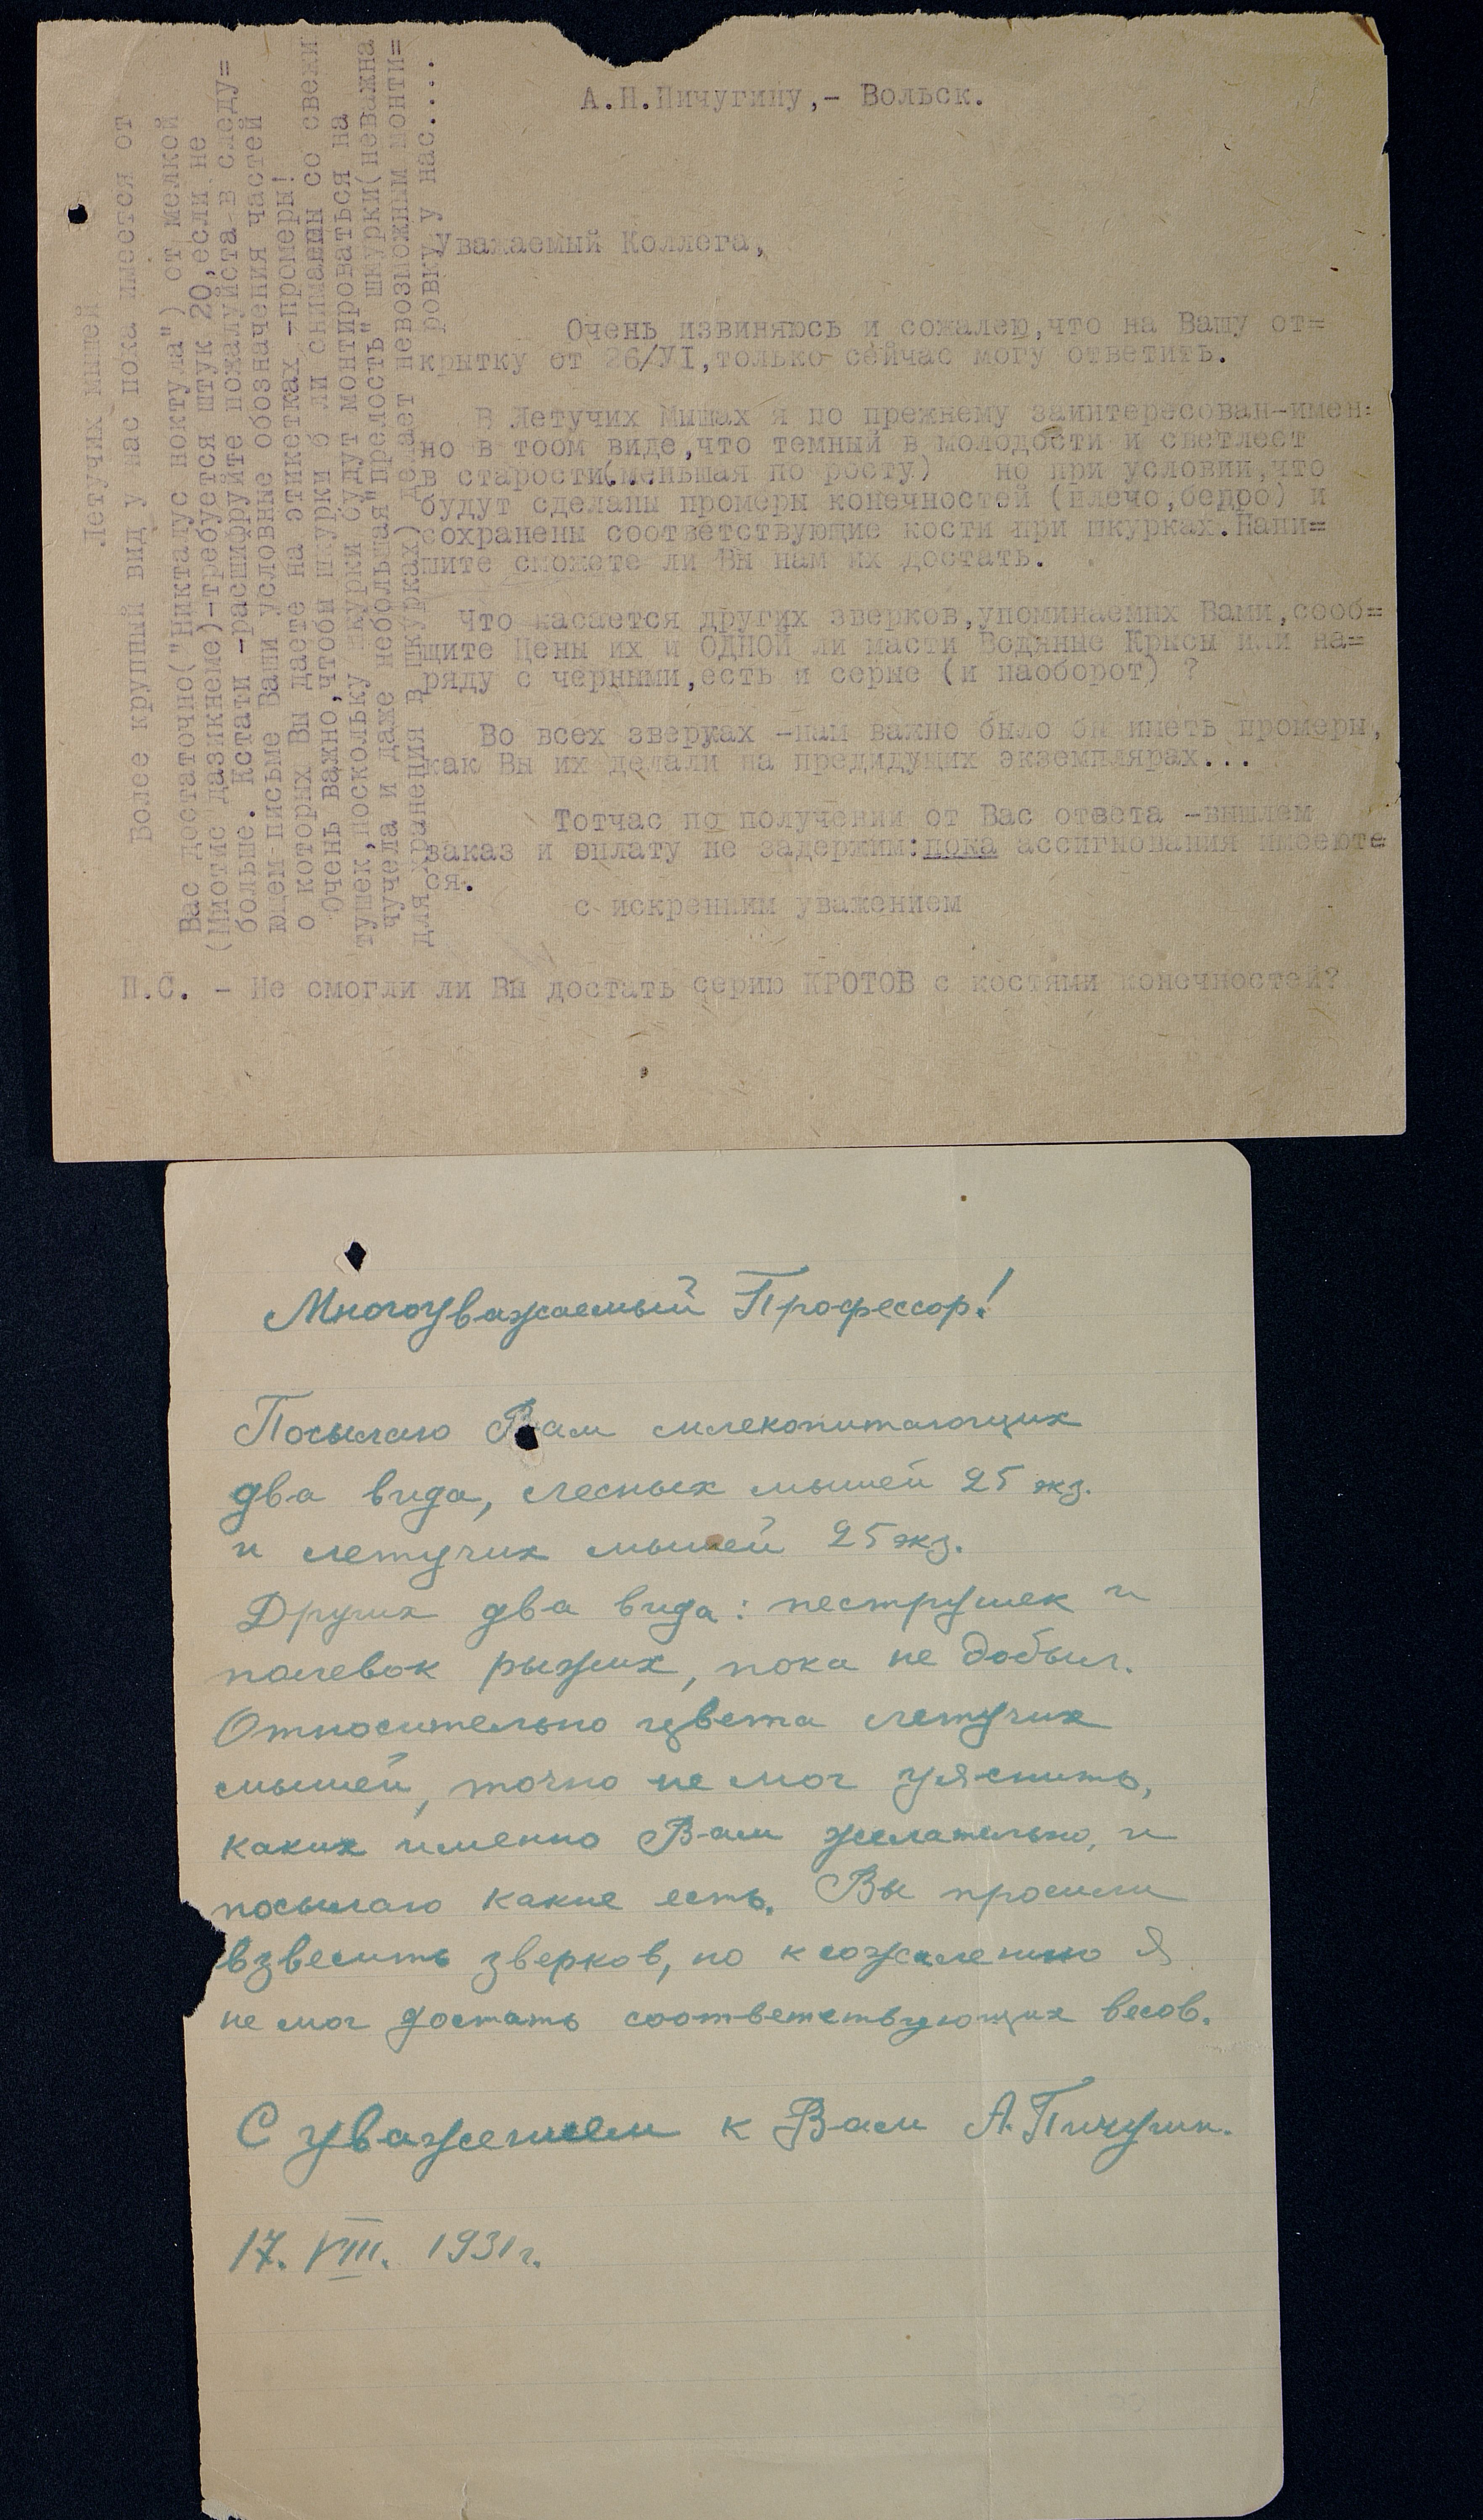 А.Н.Пичугину,- Вольск.
Уважаемый Коллега,
Очень извиняюсь и сожалею,что на Вашу от=
крытку от 26/VI,только сейчас могу ответить.
В Летучих Мышах я по прежнему заинтересован-имен=
но в тоом виде,что темный в молодости и светлест
в старости(меньшая по росту) но при условии,что
будут сделаны промеры конечностей (плечо,бедро) и
сохранены соответствующие кости при шкурках.Напи=
шите сможете ли Вы нам их достать.
Что касается других зверков,упоминаемых Вами,сооб=
щите Цены их и ОДНОЙ ли масти Водяные Крысы или на=
ряду с черными,есть и серые (и наоборот) ?
Во всех зверках -нам важно было бы иметь промеры,
как Вы их делали на предидущих экземплярах...
Тотчас по получении от Вас ответа -вышлем
заказ и оплату не задержим:пока ассигнования имеютс
ся.
с искренним уважением
П.С. - Не смогли ли Вы достать серию КРОТОВ с костями конечностей?
Летучих мышей
Более крупный вид у нас пока имеется от
Вас достаточно("Никталус ноктула") от мелкой
(Миотис дазикнеме)-требуется штук 20,если не
больше. Кстати -расшифруйте пожалуйста в следу=
ющем письме Ваши условные обозначения частей
о которых Вы даете на этикетках -промеры!
Очень важно,чтобы шкурки б ли снимаемы со свежи
тушек,поскольку шкурки будут монтироваться на
чучела и даже небольшая"прелость" шкурки(неважна
для хранения в шкурках) делает невозможным монти=
ровку у нас....
Многоуважаемый Профессор!
Посылаю Вам млекопитающих
два вида, лесных мышей 25 экз.
и летучих мышей 25 экз.
Других два вида: пеструшек и
полевок рыжих, пока не добыл.
Относительно цвета летучих
мышей, точно не мог уяснить,
каких именно Вам желательно, и
посылаю какие есть. Вы просили
взвесить зверков, но к сожалению я
не мог достать соответствующих весов.
С уважением к Вам А.Пичугин.
17. VIII. 1931г.